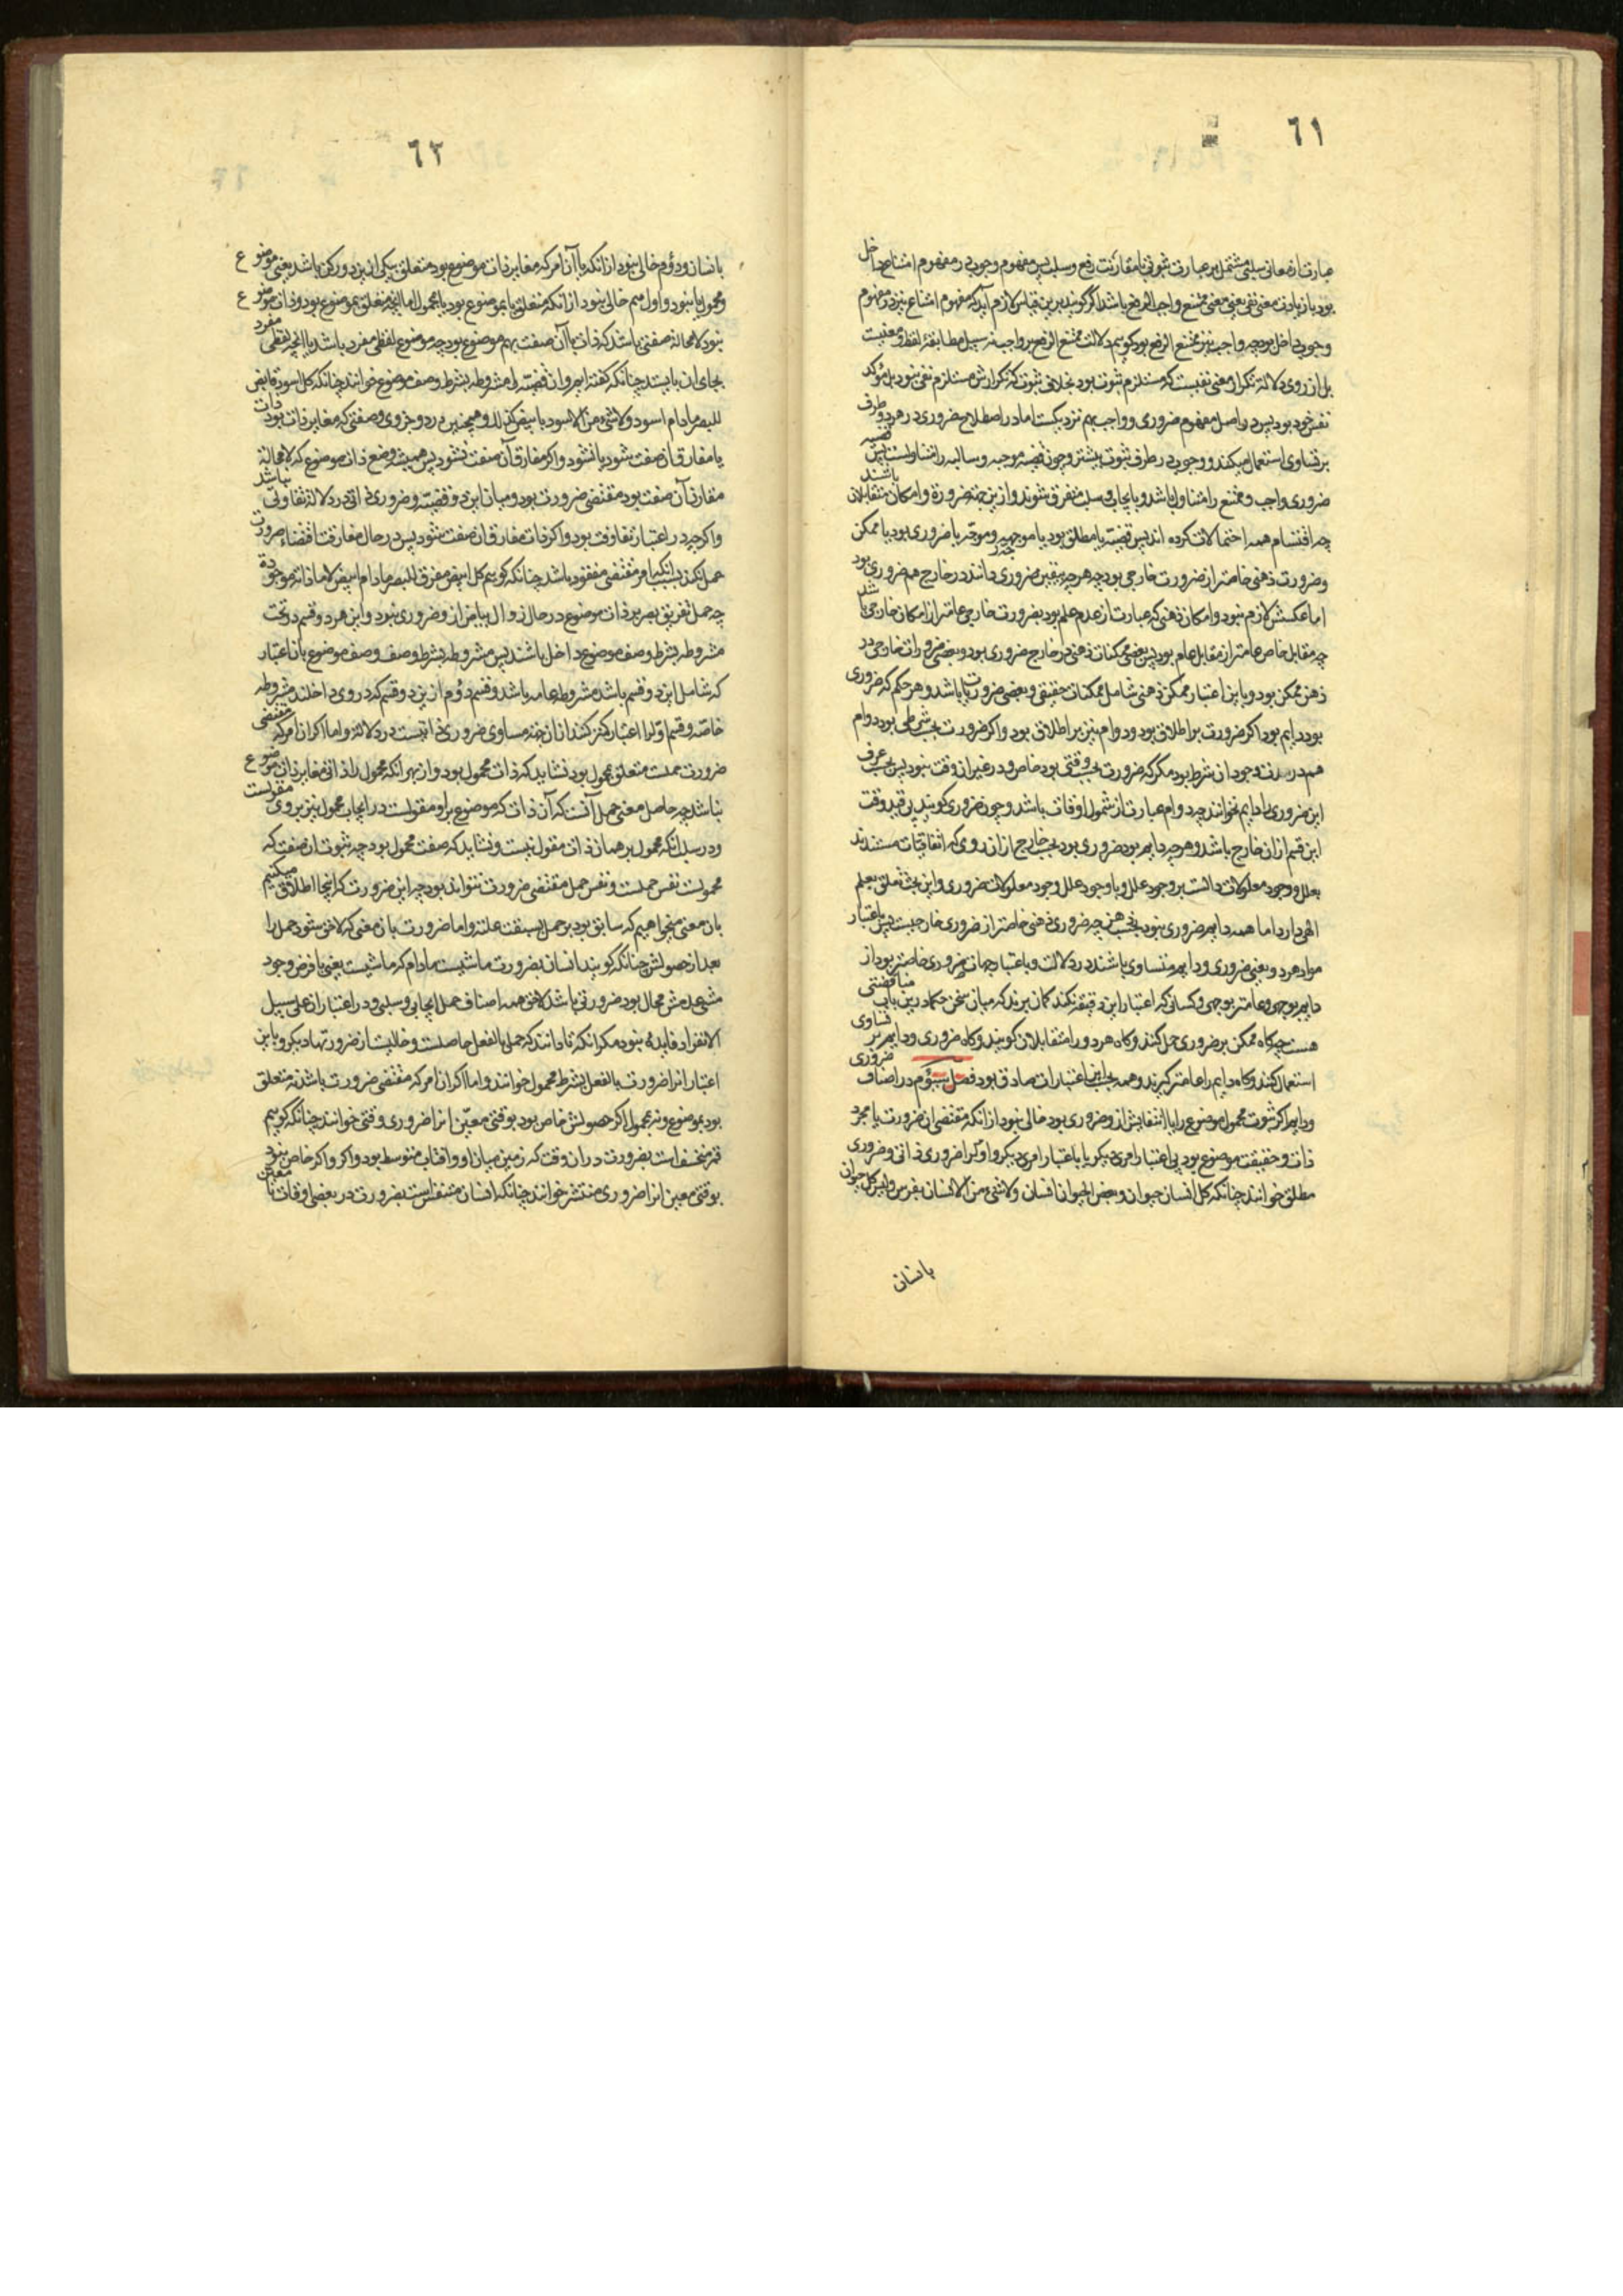 ٦١
عبارت از معانی سلبی مشتمل بر عبارت ثبوتی با مقارنت رفع و سلب پس مفهوم وجود در مفهوم امتناع داخل
بود با زیادت معنی نفی یعنی معنی ممتنع واجب الرفع باشد اگر گویند برین قیاس لازم آید که مفهوم امتناع نیز در مفهوم
وجوب داخل بود چه واجب نیز ممتنع الرفع بود گوییم دلالت ممتنع الرفع بر واجب نه بسبیل مطابقهٔ لفظ و معنیست
بل از روی دلالة تکرار معنی نفیست که مستلزم ثبوت بود بخلاف ثبوت که تکرارش مستلزم نفی نبود بل مؤکد
نفس خود بود پس در اصل مفهوم ضروری و واجب بهم نزدیکست اما در اصطلاح ضروری در هر دو طرف
بر تساوی استعمال میکنند و وجوب در طرف ثبوت بیشتر و چون قضیه موجبه و سالبه را متناولست پس قضیه
ضروری واجب و ممتنع را متناول باشد و بایجاب و سلب متفرق شوند و ازین جهة ضرورة و امکان متقابلان باشند
چه اقتسام همه احتمالات کرده اند پس قضیه یا مطلق بود یا موجهه و موجهه یا ضروری بود یا ممکن
و ضرورت ذهنی خاصتر از ضرورت خارجی بود چه هر چه بیقین ضروری دانند در خارج هم ضروری بود
اما عکسش لازم نبود و امکان ذهنی که عبارت از عدم علم بود بضرورت خارجی عامتر از امکان خارجی باشد
چه مقابل خاص عامتر از مقابل عام بود پس بعضی ممکنات ذهنی در خارج ضروری بود و بعضی ضروریات خارجی در
ذهن ممکن بود و باین اعتبار ممکن ذهنی شامل ممکنات حقیقی و بعضی ضروریات باشد و هر حکم که ضروری
بود دایم بود اگر ضرورت بر اطلاق بود دوام نیز بر اطلاق بود و اگر ضرورت بحسب شرطی بود دوام
هم در مدت وجود آن شرط بود مگر که ضرورت بحسب وقتی بود خاص و در غیر آن وقت نبود پس بحسب عرف
این ضروری را دایم نخوانند چه دوام عبارت از شمول اوقات باشد و چون ضروری گویند بی قید وقت
این قسم از آن خارج باشد و هر چه دایم بود ضروری بود بحسب خارج از آن روی که اتفاقیات مستندند
بعلل و وجود معلولات دالست بر وجود علل و با وجود علل وجود معلولات ضروری و این بحث تعلق بعلم
الهی دارد اما همه دایم ضروری نبود بحسب ذهن چه ضروری ذهنی خاصتر از ضروری خارجیست پس باعتبار
مواد هر دو یعنی ضروری و دایم متساوی باشند در دلالت و باعتبار جهات ضروری خاصتر بود از
دایم بوجهی و عامتر بوجهی و کسانی که اعتبار این دقیقه نکنند گمان برند که میان سخن حکما درین باب مناقضتی
هست چه گاه ممکن بر ضروری حمل کنند و گاه هر دو را متقابلان گویند و گاه ضروری و دایم بر تساوی
استعمال کنند و گاه دایم را عامتر گیرند و همه بحسب این اعتبارات صادق بود فصل سیؤم در اصناف ضروری
و دایم اگر ثبوت محمول موضوع را یا انتفایش ازو ضروری بود خالی نبود از انکه مقتضی آن ضرورت یا مجرد
ذات و حقیقت موضوع بود بی اعتبار امری دیگر یا باعتبار امری دیگر و اول را ضروری ذاتی و ضروری
مطلق خوانند چنانکه کل انسان حیوان و بعض الحیوان انسان ولا شیٔ من الانسان بفرس و لیس کل حیوان
بانسان
٦٢
بانسان و دوُم خالی نبود از انکه یا آن امر که مغایر ذات موضوع بود متعلق بیکی ازین دو رکن باشد یعنی موضوع
و محمول یا نبود و اول هم خالی نبود از انکه متعلق یا بموضوع بود یا بمحمول اما انچه متعلق بموضوع بود و ذات موضوع
نبود لا محالة صفتی باشد که ذات با آن صفت بهم موضوع بود چه موضوع لفظی مفرد باشد یا انچه لفظی مفرد
بجای آن بایستد چنانکه گفته ایم و آن قضیّه را مشروطه بشرط وصف موضوع خوانند چنانکه کل اسود قابض
للبصر مادام اسود ولا شیٔ من الاسود بابیض کذلک و همچنین در دو جزوی و صفتی که مغایر ذات بود ذات
یا مفارق آن صفت بشود یا نشود و اگر مفارق آن صفت نشود پس همیشه وضع ذات موضوع که لا محالة
مقارن آن صفت بود مقتضی ضرورت بود و میان این دو قضیّه و ضروری ذاتی در دلالة تفاوتی نباشد
و اگر چه در اعتبار تفاوت بود و اگر ذات مفارق آن صفت بشود پس در حال مفارقت اقتضاء ضرورت
حمل نکند بسبب انکه امر مقتضی مفقود باشد چنانکه گوییم کل ابیض مفرق للبصر مادام ابیض لا مادام ذاته موجودة
چه حمل تفریق بصر بر ذات موضوع در حال زوال بیاض ازو ضروری نبود و این هر دو قسم در تحت
مشروطه بشرط وصف موضوع داخل باشند پس مشروطه بشرط وصف وصف موضوع بآن اعتبار
که شامل این دو قسم باشد مشروطه عامه باشد و قسم دوُم ازین دو قسم که در وی داخلند مشروطه
خاصّه و قسم اول را اعتبار کمتر کنند از آن جهة مساوی ضروری ذاتیست در دلالة و اما اگر آن امر که مقتضی
ضرورت حملست متعلق بمحمول بود نشاید که ذات محمول بود و از بهر انکه محمول را ذاتی مغایر ذات موضوع
نباشد چه حاصل معنی حمل آنست که آن ذات که موضوع برو مقولست در ایجاب محمول نیز بروی مقولست
و در سلب انکه محمول بر همان ذات مقول نیست و نشاید که صفت محمول بود چه ثبوت آن صفت که
محمولست نفس حملست و نفس حمل مقتضی ضرورت نتواند بود چه این ضرورت که اینجا اطلاق میکنیم
بآن معنی میخواهیم که سابق بود بر حمل بسبقت علته و اما ضرورت بآن معنی که لاحق شود حمل را
بعد از حصولش چنانکه گویند انسان بضرورت ماشیست مادام که ماشیست یعنی با فرض وجود
مشی عدمش محال بود ضرورتی باشد لاحق همه اصناف حمل ایجابی و سلبی و در اعتبار آن علی سبیل
الانفراد فایدهٔ نبود مگر انکه تا دانند که حملی بالفعل حاصلست و خالیست از ضرورتهاء دیگر و باین
اعتبار آنرا ضرورت بالفعل بشرط محمول خوانند و اما اگر آن امر که مقتضی ضرورت باشد نه متعلق
بود بموضوع و نه بمحمول اگر حصولش خاص بود بوقتی معیّن آنرا ضروری وقتی خوانند چنانکه گوییم
قمر منخسف است بضرورت در آن وقت که زمین میان او و آفتاب متوسط بود و اگر خاص نبود
بوقتی معین آنرا ضروری منتشر خوانند چنانکه انسان متنفس است بضرورت در بعضی اوقات نا معین